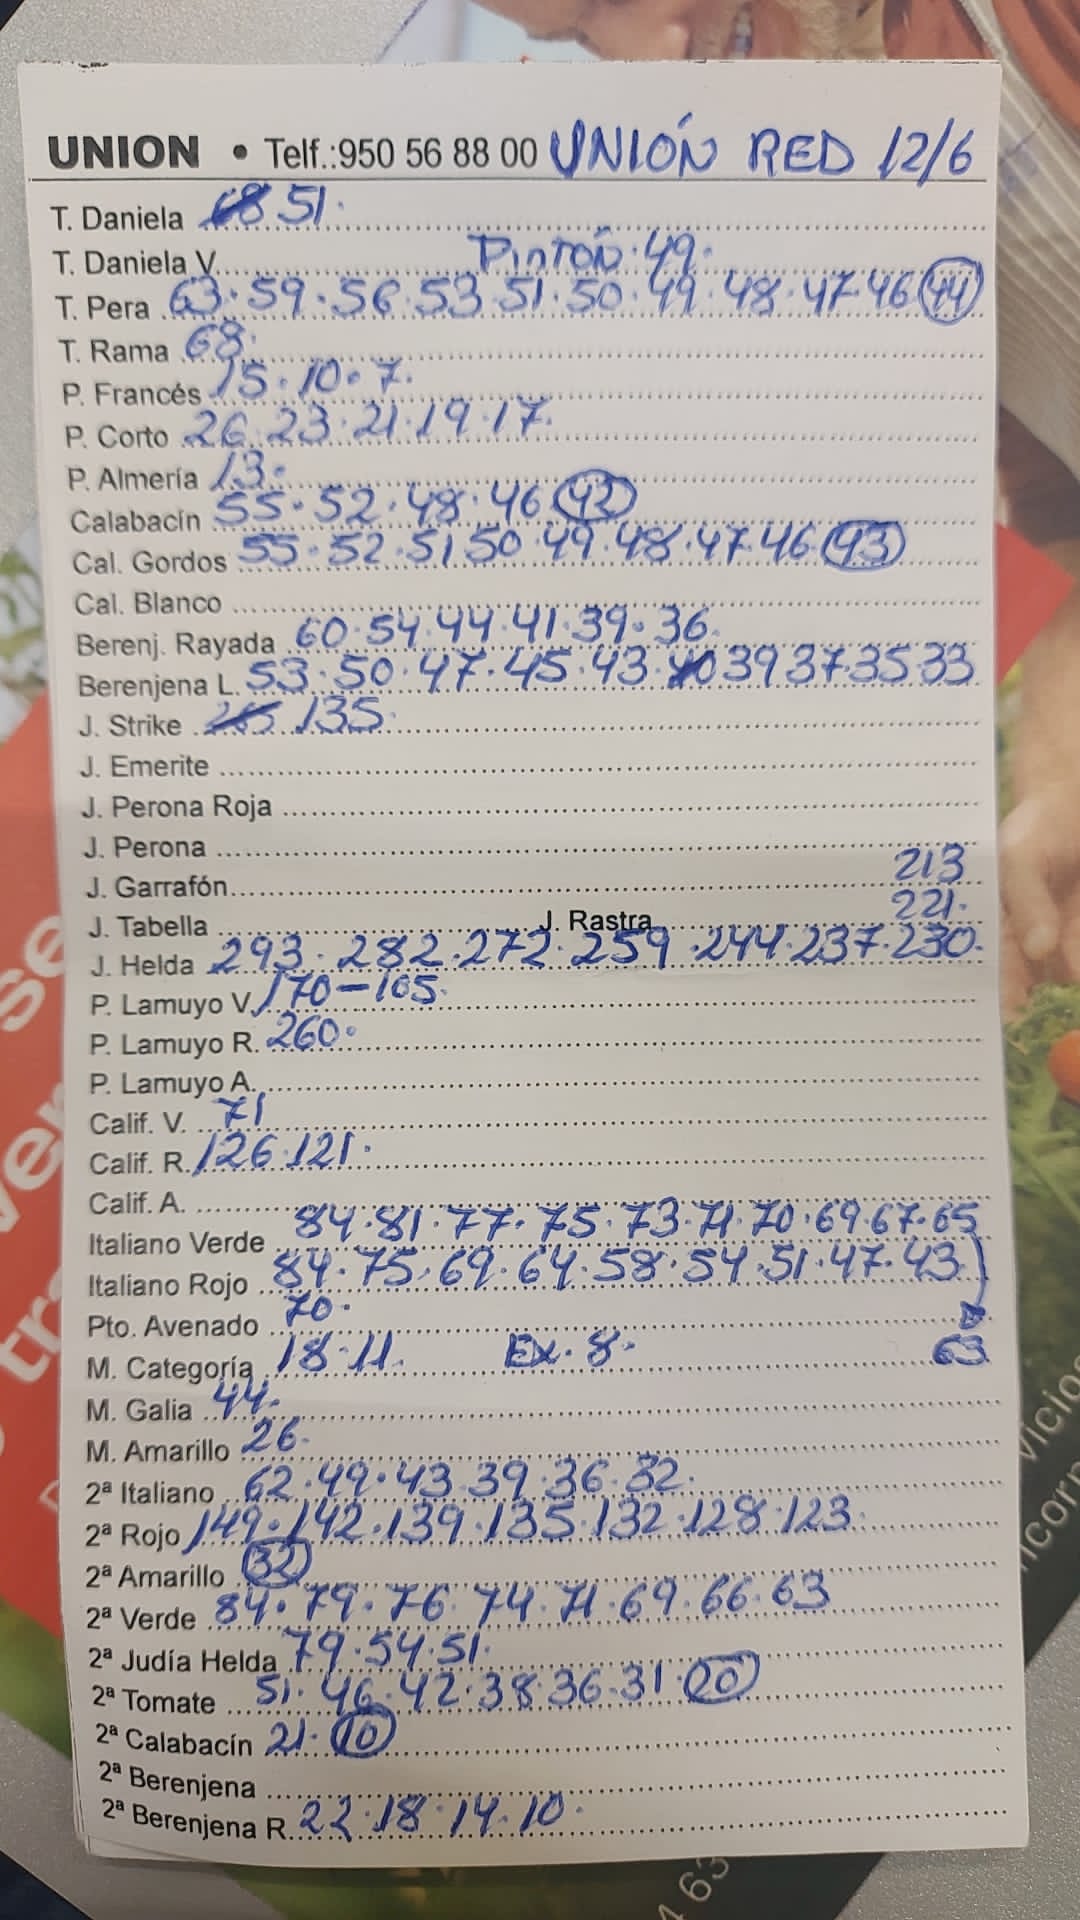 UNION • Telf.:950 56 88 00 UNIÓN RED 12/6
T. Daniela 51.
T. Daniela V. Pintón. 49.
T. Pera 63. 59. 56. 53 51. 50. 49. 48. 47. 46 44
T. Rama 68.
P. Francés 15. 10. 7.
P. Corto 26. 23. 21. 19. 17.
P. Almería 13.
Calabacín 55. 52. 48. 46 42
Cal. Gordos 55. 52. 51 50. 49. 48. 47. 46 43
Cal. Blanco
Berenj. Rayada 60. 54. 44. 41. 39. 36.
Berenjena L. 53. 50. 47. 45. 43. 40 39 37 35 33
J. Strike 135.
J. Emerite
J. Perona Roja
J. Perona
J. Garrafón 213
J. Tabella J. Rastra 221.
J. Helda 293. 282. 272. 259. 244. 237. 230.
P. Lamuyo V. 170-165.
P. Lamuyo R. 260.
P. Lamuyo A.
Calif. V. 71
Calif. R. 126. 121.
Calif. A.
Italiano Verde 84. 81. 77. 75. 73. 71. 70. 69. 67. 65
Italiano Rojo 84. 75. 69. 64. 58. 54. 51. 47. 43.
Pto. Avenado 70.
M. Categoría 18. 11. Ex. 8. 63
M. Galia 44.
M. Amarillo 26.
2ª Italiano 62. 49. 43. 39. 36. 32.
2ª Rojo 149. 142. 139. 135. 132. 128. 123.
2ª Amarillo 32
2ª Verde 84. 79. 76. 74. 71. 69. 66. 63
2ª Judía Helda 79. 54. 51.
2ª Tomate 51. 46. 42. 38. 36. 31. 20
2ª Calabacín 21. 10
2ª Berenjena
2ª Berenjena R. 22. 18. 14. 10.